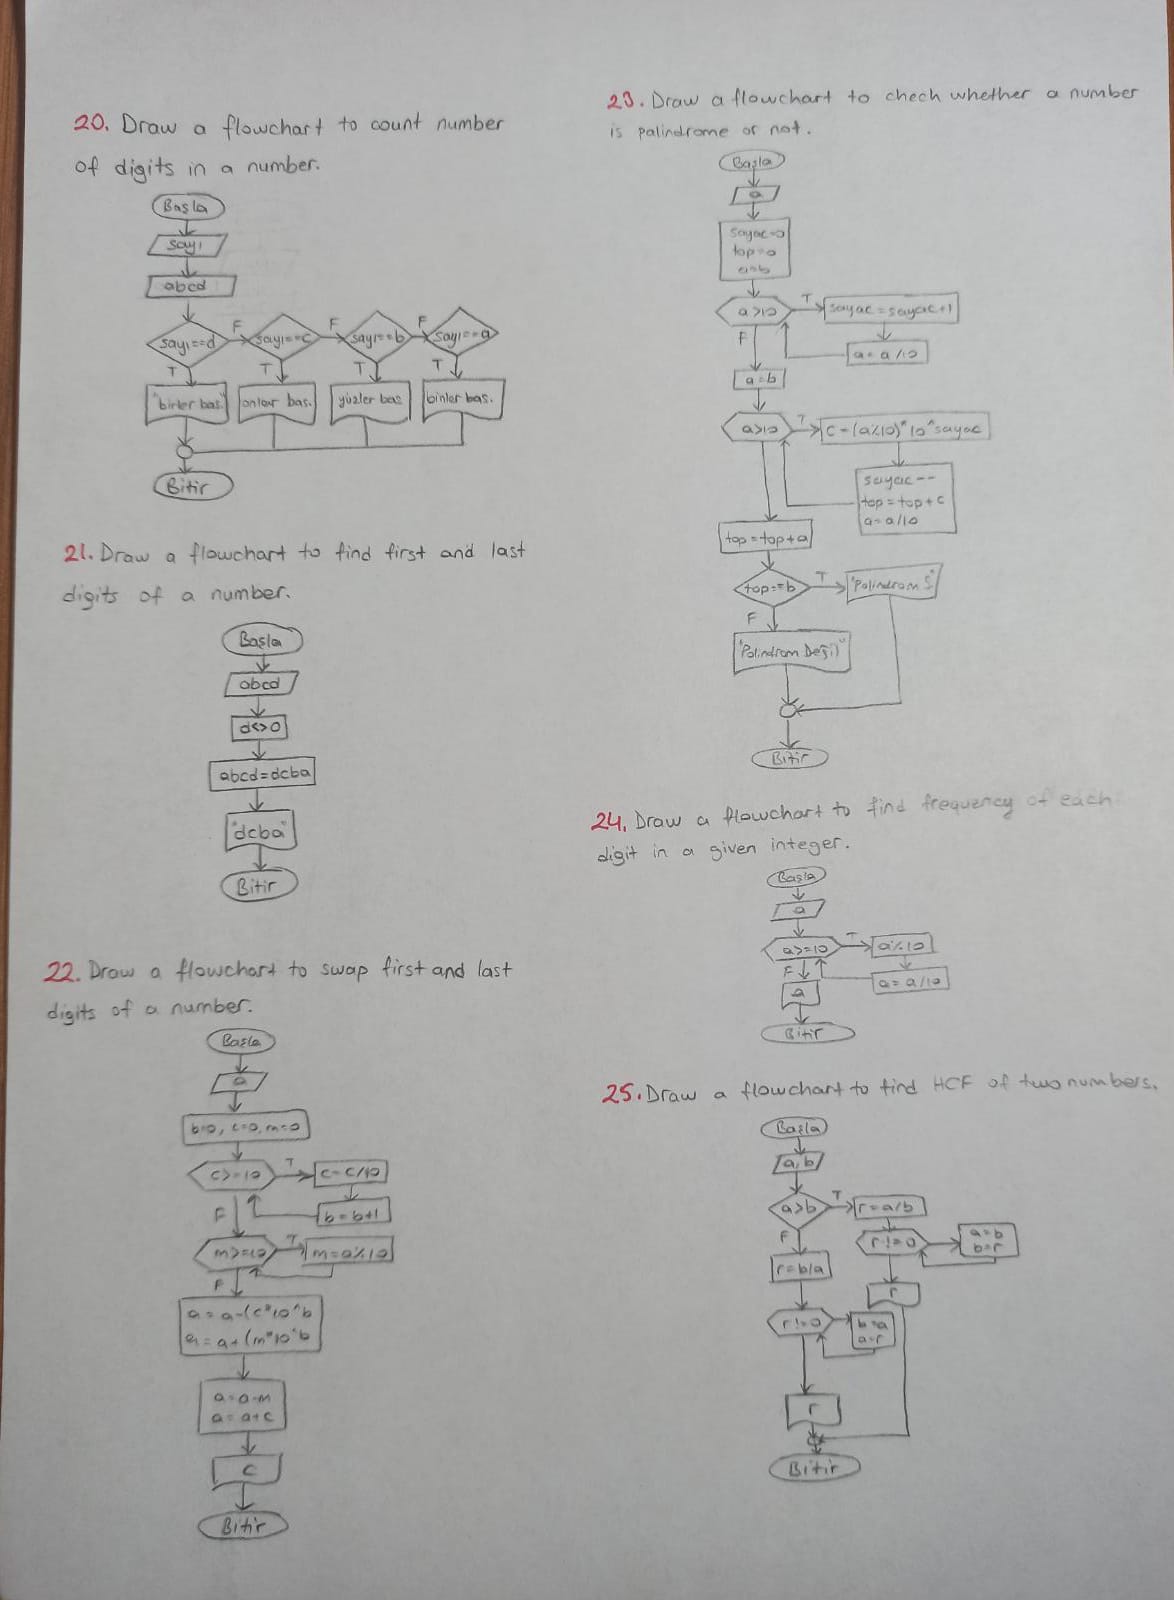 20. Draw a flowchart to count number
of digits in a number.
Başla
sayı
abcd
sayı==d
F
sayı==c
F
sayı==b
F
sayı==a
T
T
T
T
"birler bas."
onlar bas.
yüzler bas
binler bas.
Bitir
21. Draw a flowchart to find first and last
digits of a number.
Başla
abcd
d<>0
abcd=dcba
"dcba"
Bitir
22. Draw a flowchart to swap first and last
digits of a number.
Başla
a
b=0, c=0, m=0
c>=10
T
c=c/10
F
b=b+1
m>=10
T
m=a%10
F
a=a-(c*10^b
a=a+(m*10^b
a=a-m
a=a+c
c
Bitir
23. Draw a flowchart to chech whether a number
is palindrome or not.
Başla
a
sayac=0
top=0
a=b
a>10
T
sayac=sayac+1
F
a=a/10
a=b
a>10
T
c=(a%10)*10^sayac
sayac--
top=top+c
a=a/10
top=top+a
top==b
T
F
"Polindrom Değil"
Bitir
24. Draw a flowchart to find frequency of each
digit in a given integer.
Başla
a
a>=10
T
a%10
F
a=a/10
a
Bitir
25. Draw a flowchart to find HCF of two numbers.
Başla
a,b
a>b
T
r=a/b
F
r!=0
a=b
b=r
r=b/a
r
r!=0
b=a
a=r
r
Bitir